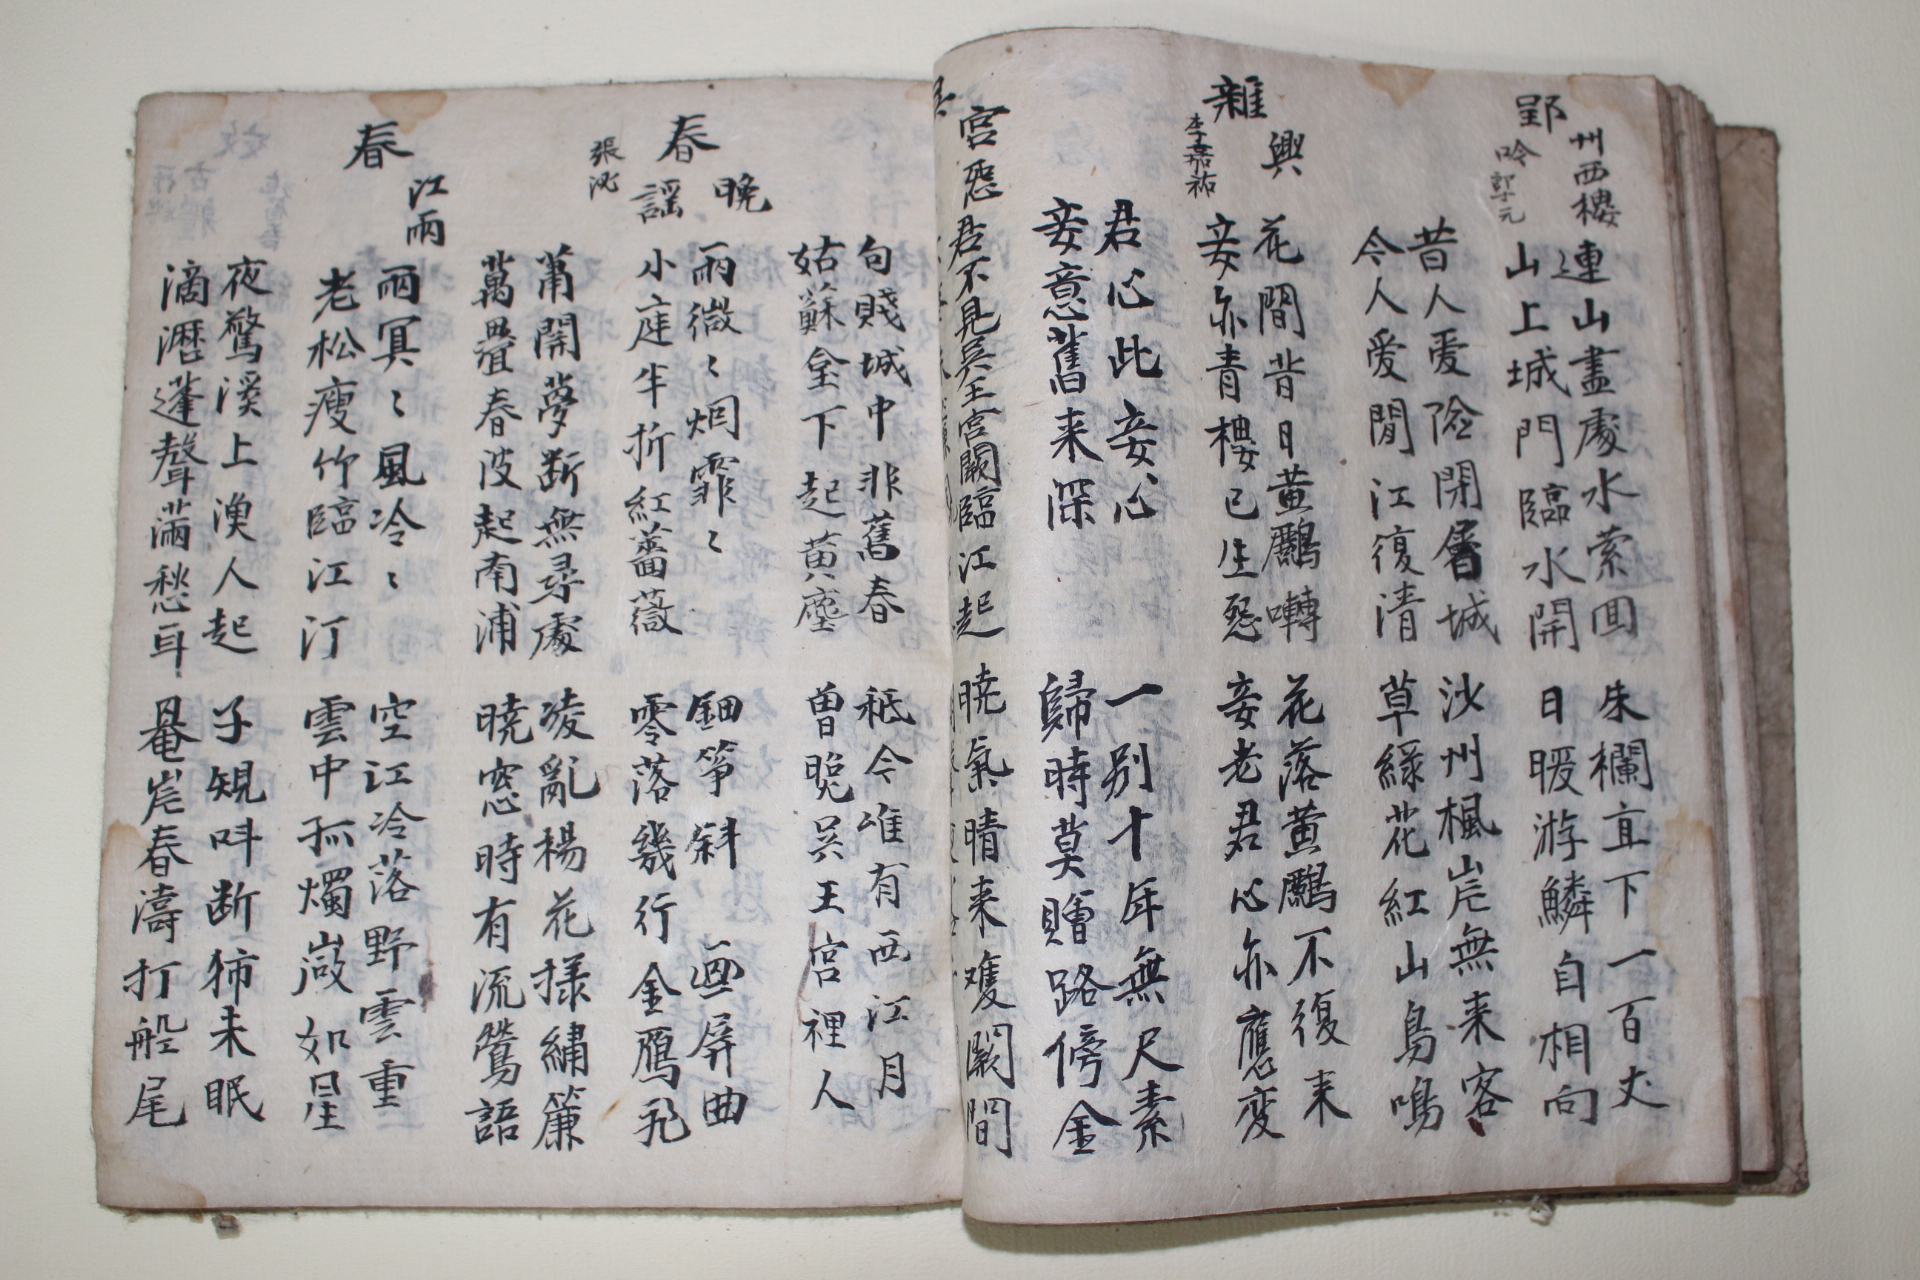 郢州西樓
吟 郭元
連山盡處水縈回 朱欄直下一百丈
山上城門臨水開 日暖游鱗自相向
昔人愛險閉層城 沙州楓岸無来客
今人爱閒江復清 草緑花紅山鳥鳴
雜興
李嘉祐
花間昔日黄鸝囀 花落黄鸝不復来
妾亦青樓已生怨 妾老君心亦應変
君心比妾心 一别十年無尺素
妾意舊来深 歸時莫贈路傍金
吴宮怨
君不見吴王宮闕臨江起
曉氣晴来雙闕間
句賤城中非舊春 秪今唯有西江月
姑蘇䑓下起黄塵 曽晩吴王宮裡人
春晚謠
張泌
雨微〻烟霏〻 鈿筝斜〻画屏曲
小庭半折紅薔薇 零落幾行金鴈飛
蕭関夢断無尋處 凌亂楊花撲繡簾
萬疊春波起南浦 曉窓時有流鶯語
春江雨
雨冥〻風冷〻 空江冷落野雲重
老松瘦竹臨江汀 雲中孤燭㣲如星
夜驚溪上漁人起 子䂓叫断猶未眠
滴瀝蓬聲滿愁耳 罨岸春濤打船尾